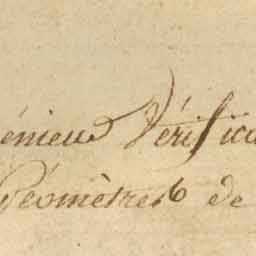 énieur Vérific
Géomètres de